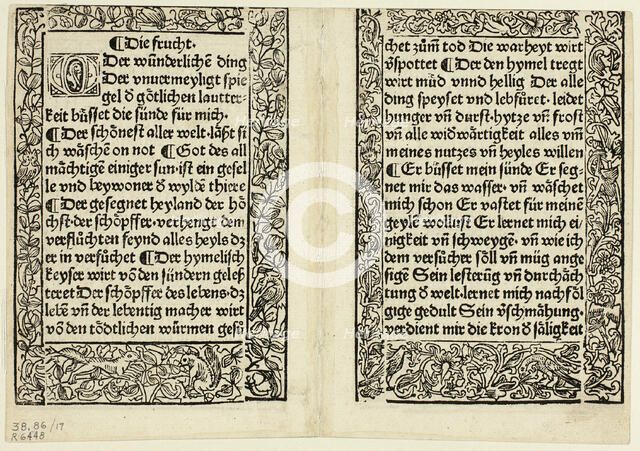 ¶Die frucht.
O Der wunderlichē ding
Der vnuermeyligt spie
gel d̕ götlichen lautter-
keit büsset die sünde für mich.
¶Der schönest aller welt·laßt si
ch wäschē on not ¶Got des all
mächtigē einiger sun·ist ein gesel
le vnd beywoner d̕ wylde thiere
¶Der gesegnet heyland der hö
chst·der schöpffer·verhengt dem
verflüchten feynd alles heyls dz
er in versüchet ¶Der hymelisch
keyser wirt vō den sündern geles
teret Der schöpffer des lebens·dz
lebē vñ der lebentig macher wirt
vō den tödtlichen würmen gesü
chet zům tod Die warheyt wirt
v̕spottet ¶Der den hymel tregt
wirt müd vnnd hellig Der alle
ding speyset vnd lebfüret·leidet
hunger vñ durst·hytze vñ frost
vñ alle widwärtigkeit alles vm̄
meines nutzes vñ heyles willen
¶Er büsset mein sünde Er seg-
net mir das wasser· vñ wäschet
mich schon Er vastet für meinē
geyle wollust Er lernet mich ei-
nigkeit vñ schweygē· vñ wie ich
dem versücher söll vñ müg ange
sigē Sein lesterūg vñ durchäch
tung d̕ welt·lernet mich nachföl
gige gedult Sein v̕schmähung·
verdient mir die kron d̕ säligkeit
38.86/17
R6448